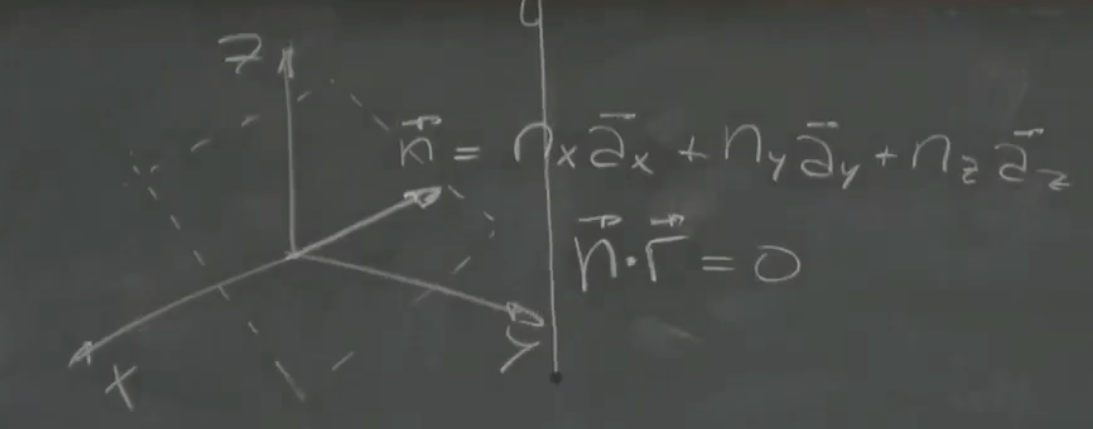 z
n⃗ = nₓa⃗ₓ + n_y a⃗_y + n_z a⃗_z
n⃗·r⃗ = 0
y
x